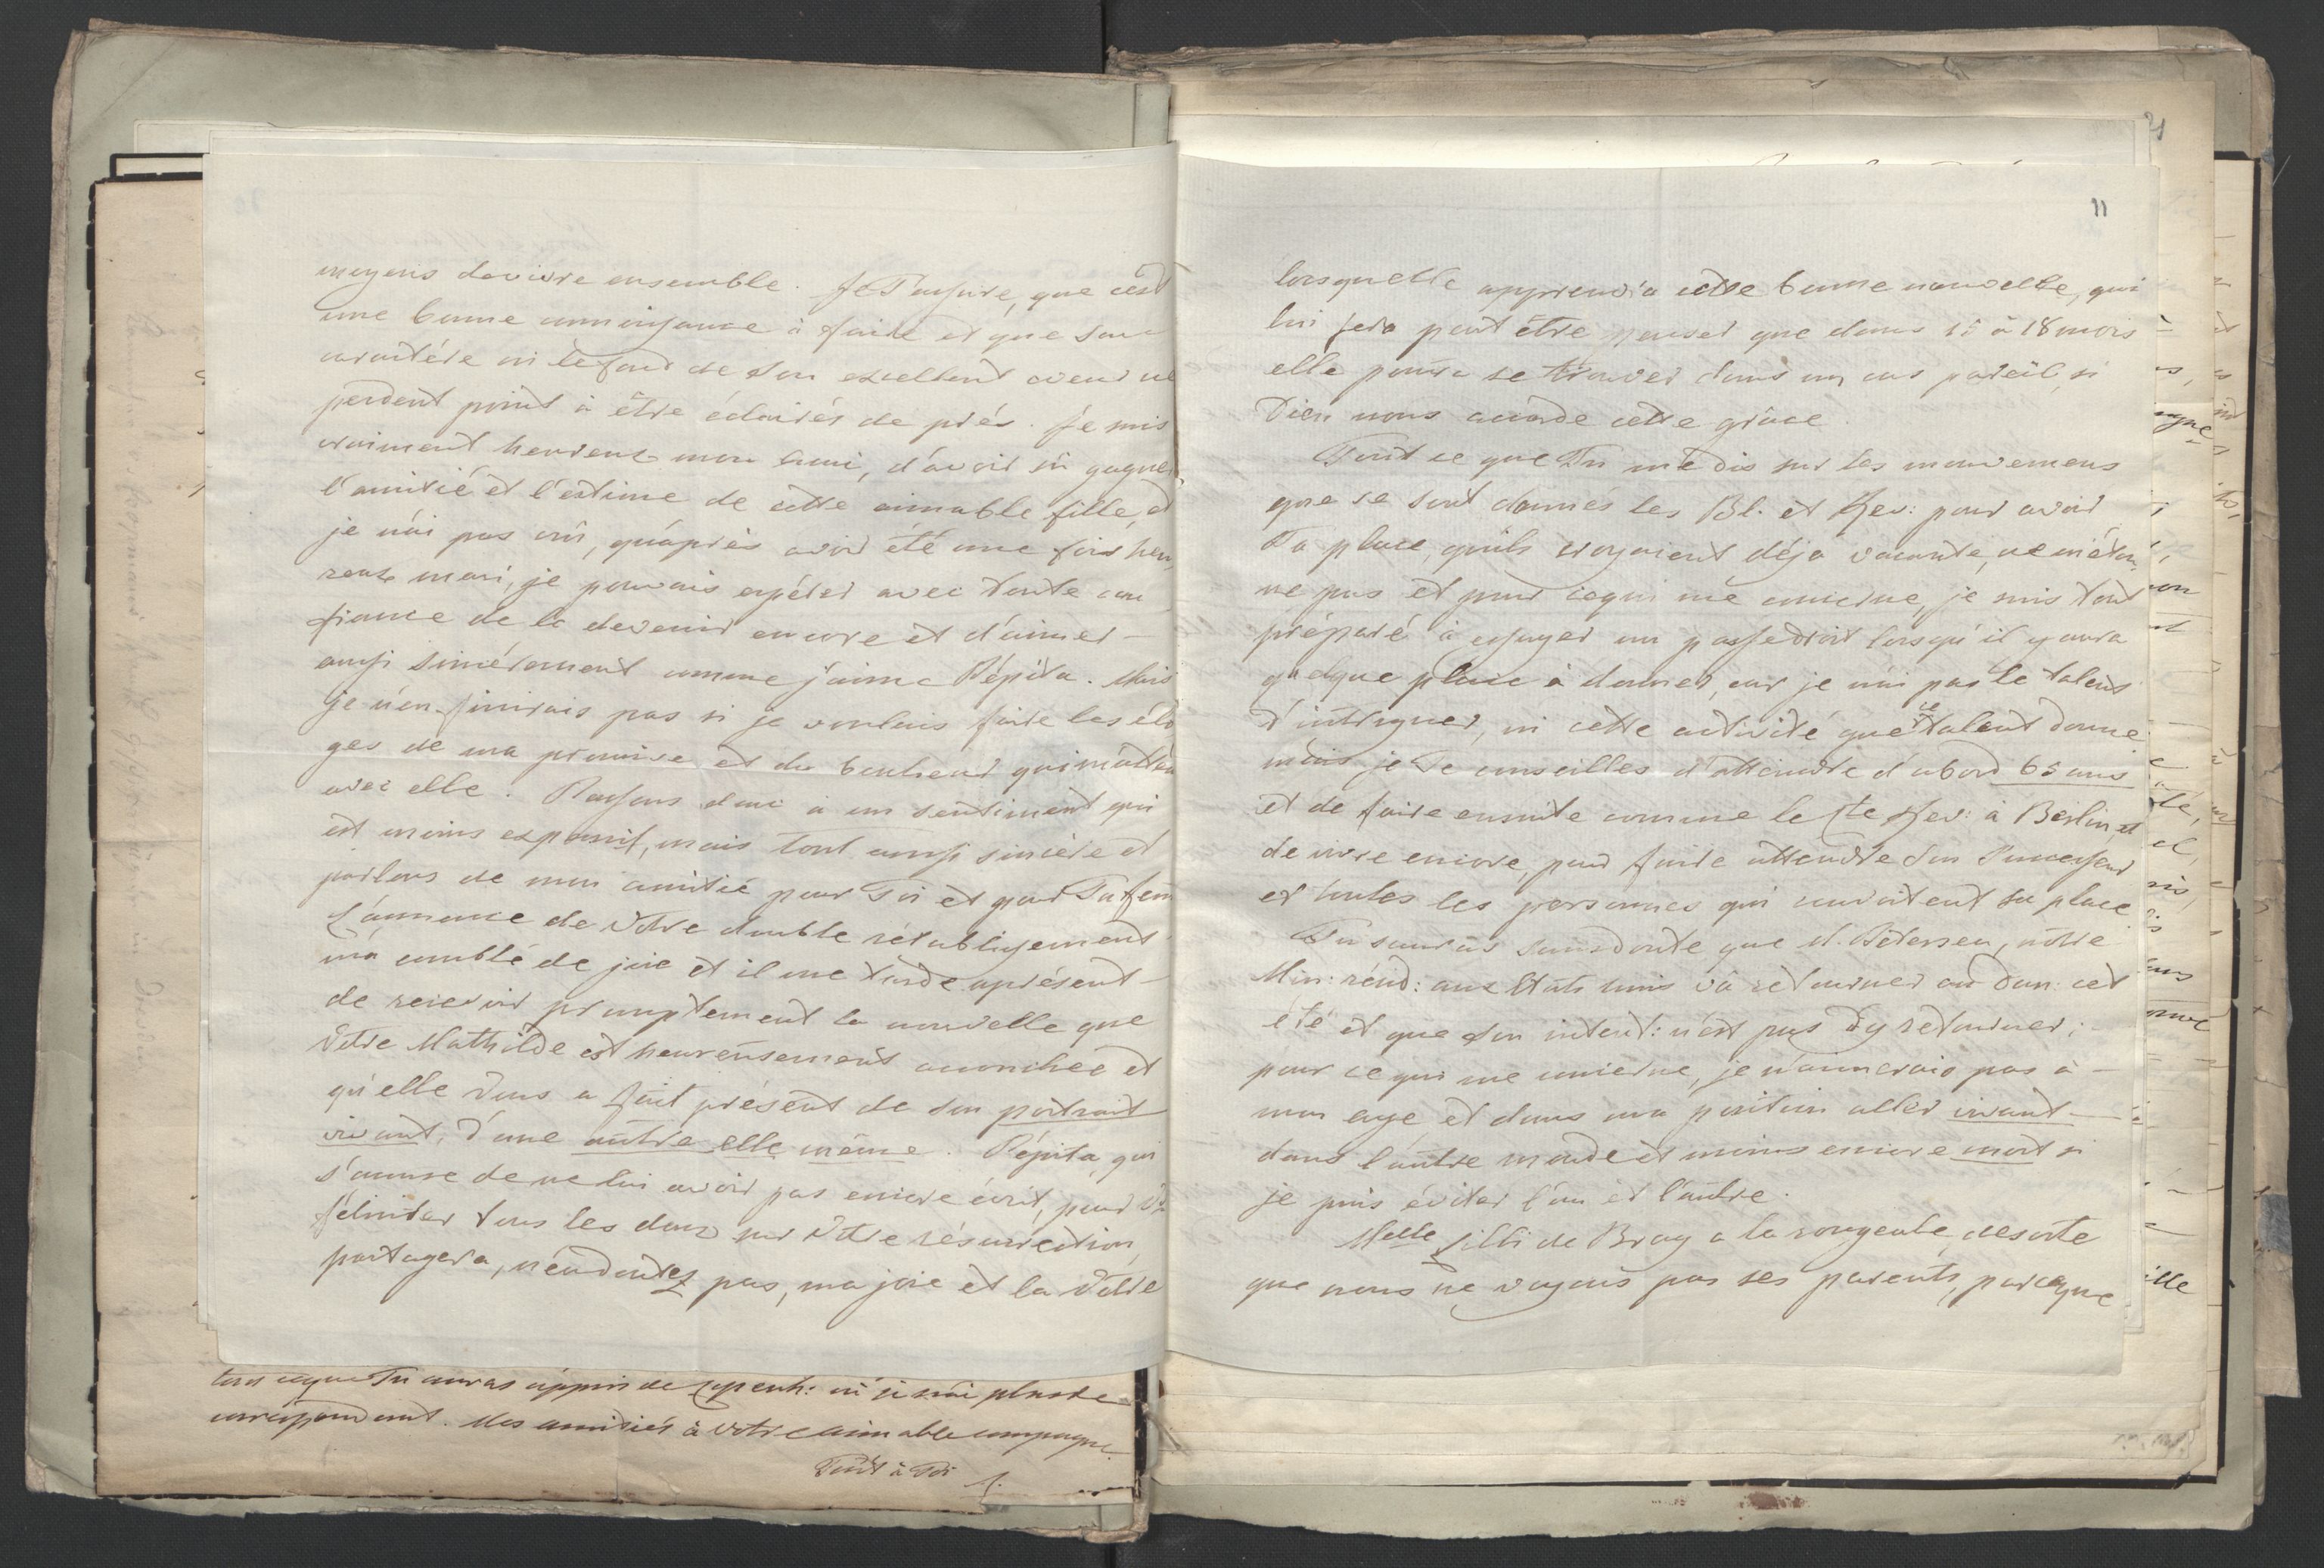 moyens devivre ensemble. Je T'assure, que c'est
une bonne connoissance à faire et que son
caractére ni le fond de son excellent coeur ne
perdent point à être éclairés de près. Je suis
vraiment heureux mon ami, d'avoir sû gagner
l'amitié et l'estime de cette aimable fille, et
je n'ai pas crû, qu'après avoir été une fois heu
reux mari, je pouvais espérer avec toute con
fiance de le devenir encore et d'aimer
aussi sincérement comme j'aime Pépita. Mais
je n'en finirais pas si je voulais faire les élo
ges de ma promise et du bonheur qui m'attend
avec elle. Passons donc à un sentiment qui
est moins expansif, mais tout aussi sincère et
parlons de mon amitié pour Toi et pour Ta fem
L'annonce de Votre double rétablissement
m'a comblé de joie et il me tarde aprésent
de recevoir promptement la nouvelle que
Votre Mathilde est heureusement accouchée et
qu'elle Vous a fait présent de son portrait
vivant, d'une autre elle même. Pépita, qui
s'accuse de ne lui avoir pas encore écrit, pour Vs
féliciter tous les deux sur Votre résurrection,
partagera, n'en doutez pas, ma joie et la Votre
tout ceque Tu auras appris de Copenh: où je n'ai plus de
correspondant. Mes amitiés à Votre aimable compagne
Tout à Toi
11
lorsqu'elle apprendra cette bonne nouvelle, qui
lui fera peut être penser que dans à 18 mois
elle pourra se trouver dans un cas pareil, si
Dieu nous accorde cette grâce.
Tout ce que Tu me dis sur les mouvemens
que se sont donnés les Bl. et pour avoir
Ta place, qu'ils croyaient déjà vacante, ne m'éton
ne pas et pour cequi me concerne, je suis tout
préparé à essuyer un passedroit lorsqu'il y aura
quelque place à donner, car je n'ai pas le talent
d'intriguer, ni cette activité que ce talent donne
mais je Te conseilles d'atteindre d'abord 65 ans
et de faire ensuite comme le Cte à Berlin, et
de vivre encore, pour faire attendre son Successeur
et toutes les personnes qui convoitent sa place
Tu sauras sans doute que M. Petersen, nôtre
Min: résid: aux Etats Unis va retourner en Dan: cet
été et que son intent: n'est pas d'y retourner;
pour ce qui me concerne, je n'aimerais pas à
mon age et dans ma position aller vivant
dans l'autre monde et moins encore mort si
je puis éviter l'un et l'autre.
Melle de Bray a la rougeole, desorte
que nous ne voyons pas ses parents, parceque